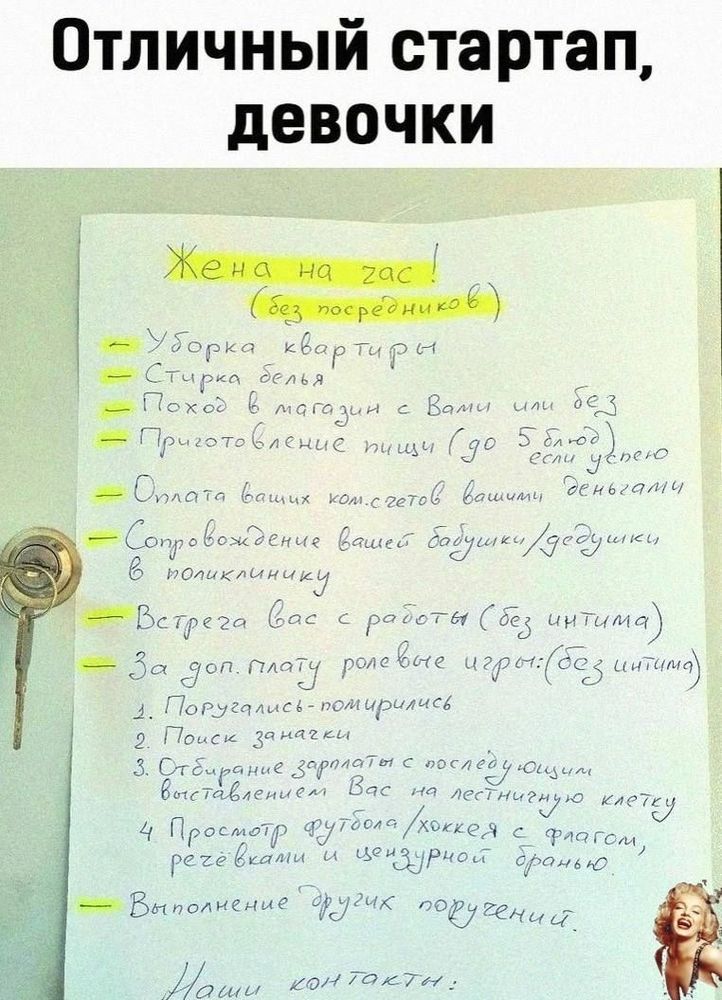 Отличный стартап,
девочки
Жена на час!
(без посредников)
– Уборка квартиры
– Стирка белья
– Поход в магазин с Вами или без
– Приготовление пищи (до 5 блюд)
если успею
– Оплата ваших ком.счетов вашими деньгами
– Сопровождение вашей бабушки/дедушки
в поликлинику
– Встреча вас с работы (без интима)
– За доп. плату ролевые игры:(без интима)
1. Поругались-помирились
2. Поиск заначки
3. Отбирание зарплаты с последующим
выставлением Вас на лестничную клетку
4 Просмотр футбола/хоккея с флагом,
речёвками и цензурной бранью.
– Выполнение других поручений.
Наши контакты: